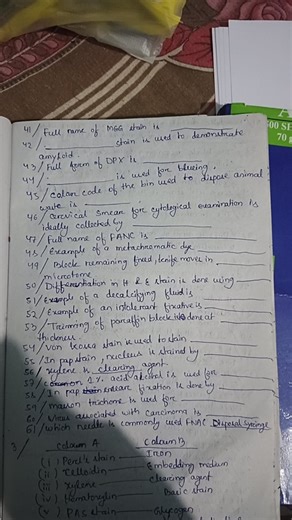 41/ Full name of MGG stain is
42/ stain is used to demonstrate
amyloid.
43/ Full form of DPX is
44/ is used for blueing.
45/ Colour code of the bin used to dispose animal
waste is
46/ Cervical smear for cytological examination is
ideally collected by
47/ Full name of FANC is
48/ Example of a metachromatic dye
49/ Block remaining fixed, knife moves in
microtome
50/ Differentiation in H & E stain is done using
51/ Example of a decalcifying fluid is
52/ Example of an intolerant fixative is
53/ Trimming of paraffin block is done at
thickness.
54/ Von kossa stain is used to stain
55/ In papstain, nucleus is stained by
56/ Xylene is clearing agent
57/ 1% acid alcohol is used for
58/ In pap smear fixation is done by
59/ masson trichome is used for
60/ Virus associated with carcinoma is
61/ which needle is commonly used FNAC Disposal Syringe
Column A Column B
(i) Perl's stain Iron
(ii) Celloidin Embedding medium
(iii) Xylene clearing agent
(iv) Hematoxylin Basic stain
(v) PAS stain Glycogen
500 SH
70 g